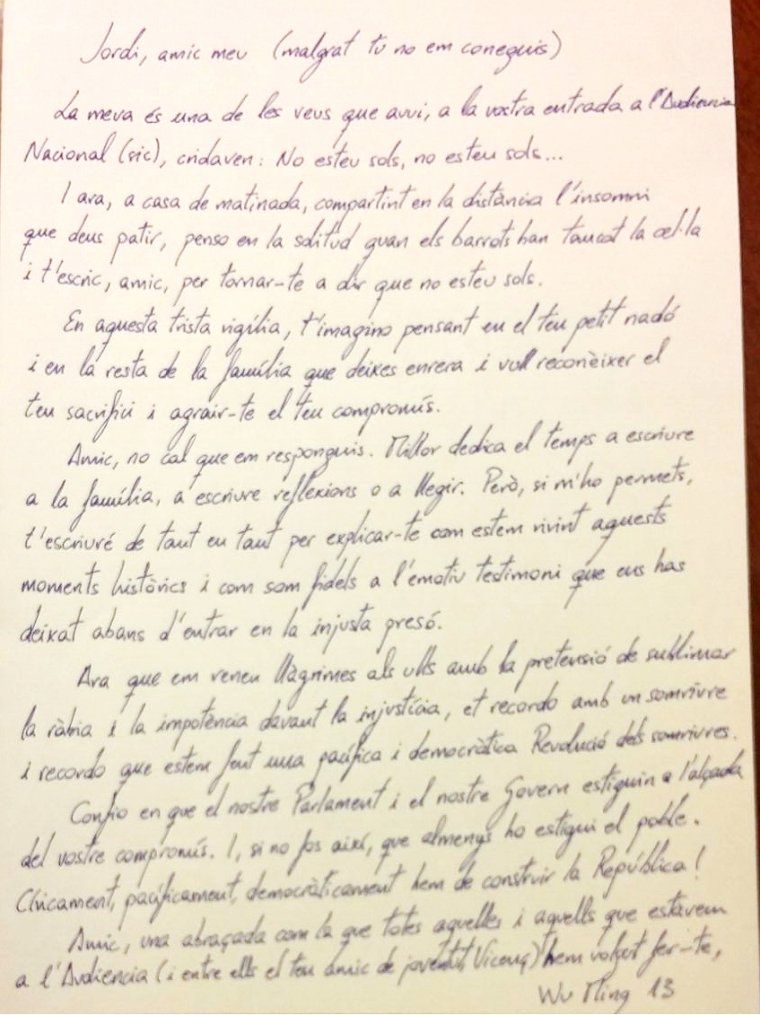 Jordi, amic meu (malgrat tu no em coneguis)
La meva és una de les veus que avui, a la vostra entrada a l'Audiencia
Nacional (sic), cridaven: No esteu sols, no esteu sols...
I ara, a casa de matinada, compartint en la distància l'insomni
que deus patir, penso en la solitud quan els barrots han tancat la cel·la
i t'escric, amic, per tornar-te a dir que no esteu sols.
En aquesta trista vigília, t'imagino pensant en el teu petit nadó
i en la resta de la família que deixes enrera i vull reconèixer el
teu sacrifici i agrair-te el teu compromís.
Amic, no cal que em responguis. Millor dedica el temps a escriure
a la família, a escriure reflexions o a llegir. Però, si m'ho permets,
t'escriuré de tant en tant per explicar-te com estem vivint aquests
moments històrics i com som fidels a l'emotiu testimoni que ens has
deixat abans d'entrar en la injusta presó.
Ara que em venen llàgrimes als ulls amb la pretensió de sublimar
la ràbia i la impotència davant la injustícia, et recordo amb un somriure
i recordo que estem fent una pacífica i democràtica Revolució dels somriures.
Confio en que el nostre Parlament i el nostre Govern estiguin a l'alçada
del vostre compromís. I, si no fos així, que almenys ho estigui el poble.
Cívicament, pacíficament, democràticament hem de construir la República!
Amic, una abraçada com la que totes aquelles i aquells que estavem
a l'Audiencia (i entre ells el teu amic de joventut Vicenç) hem volgut fer-te,
Wu Ming 13